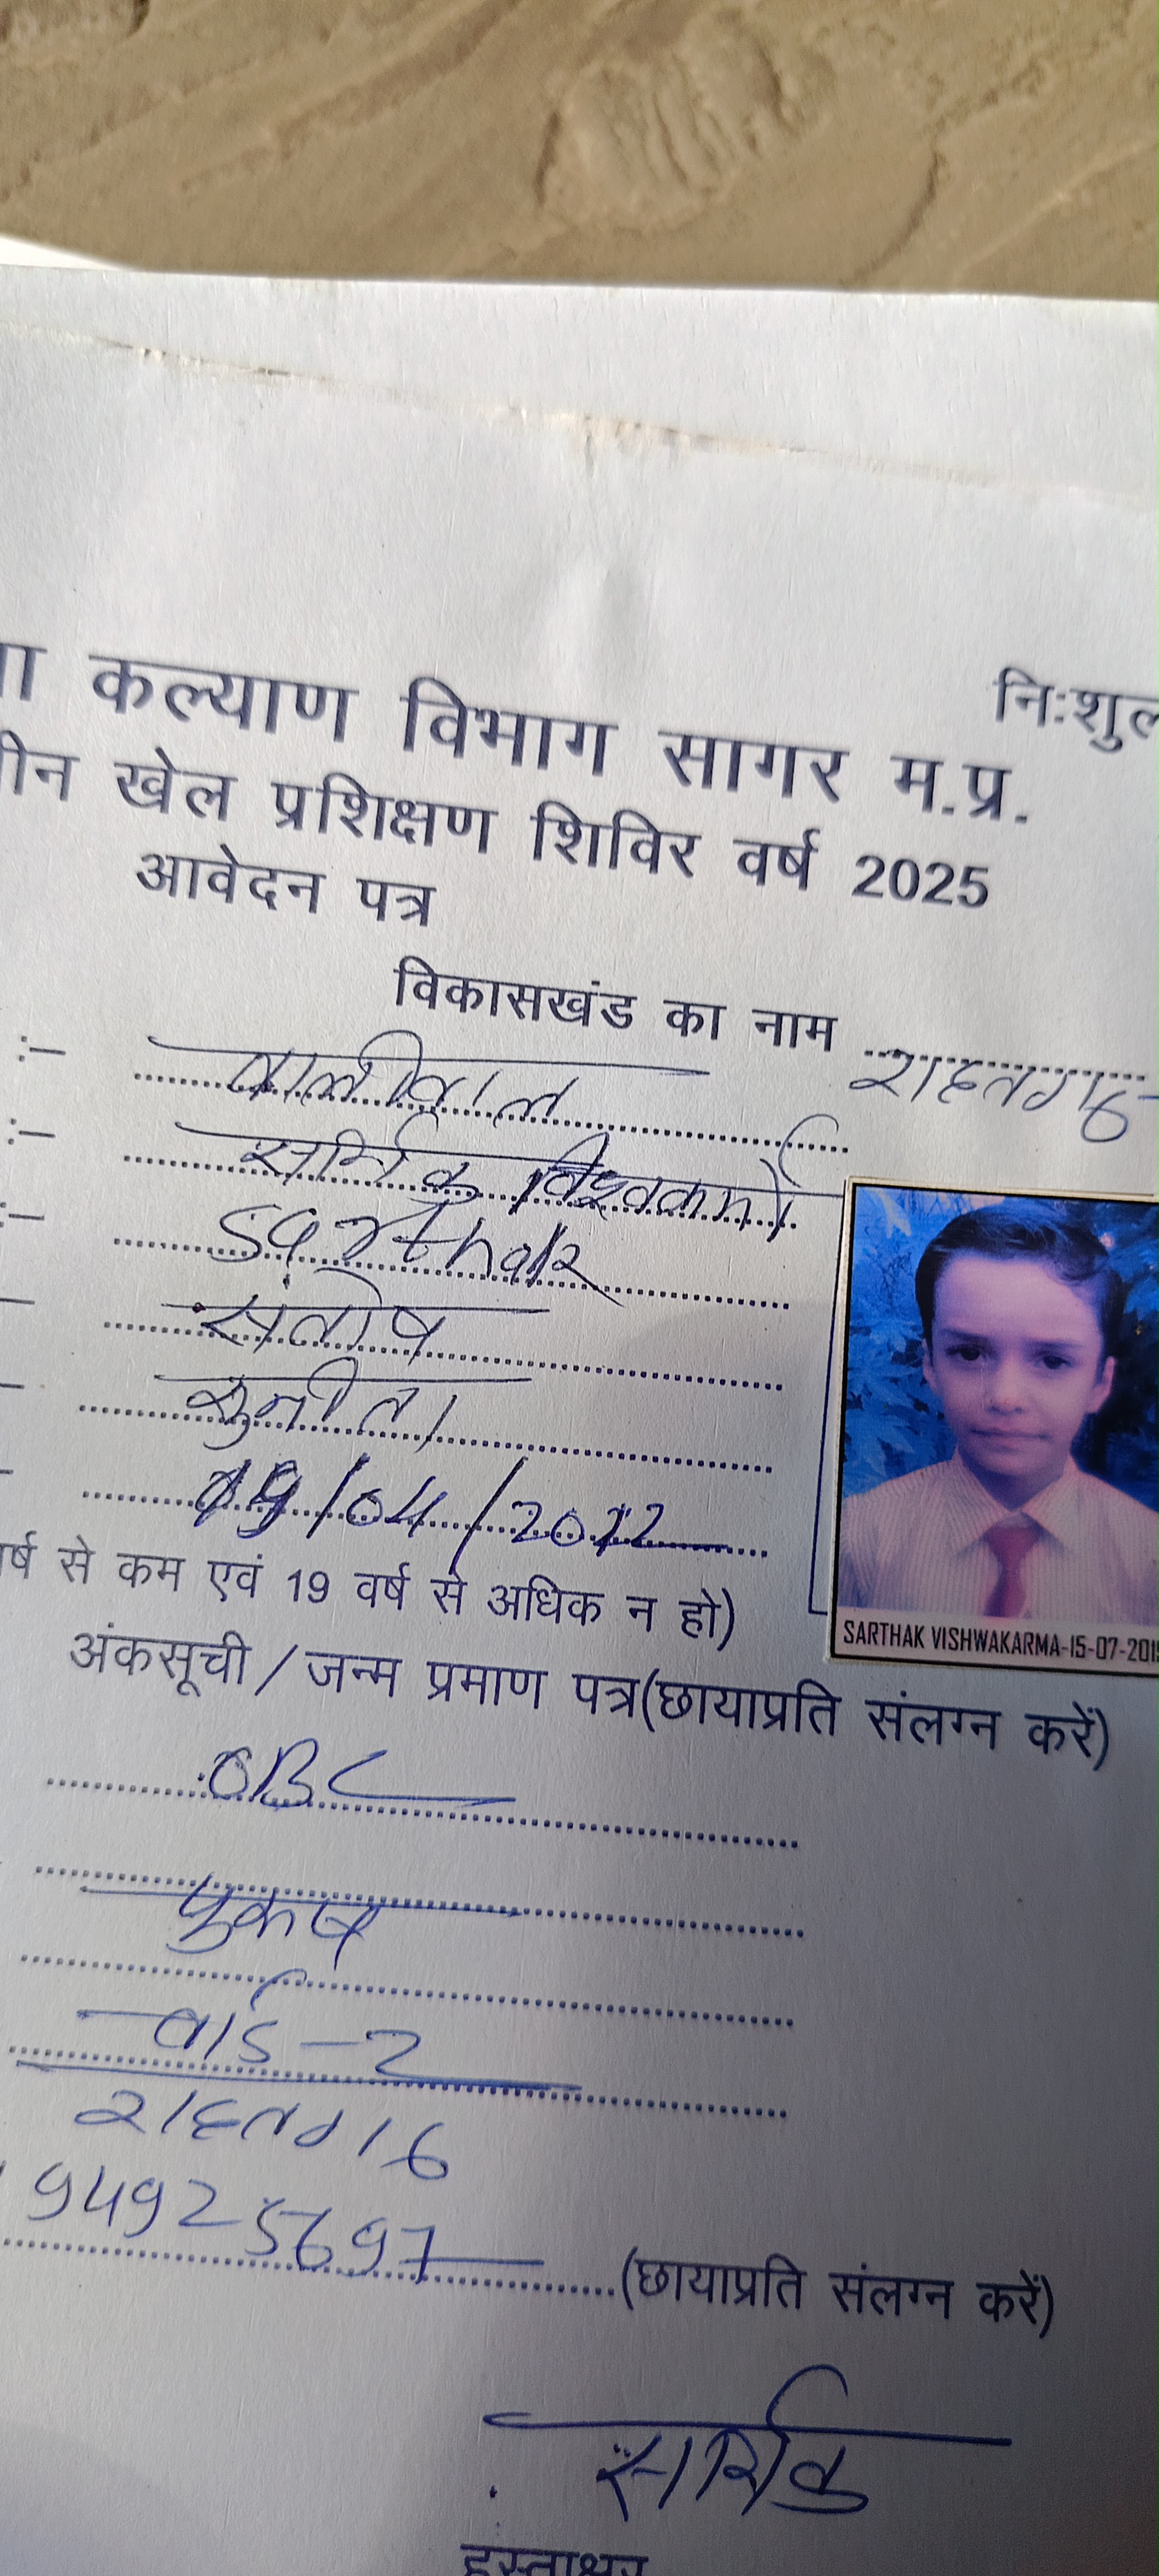 कल्याण विभाग सागर म.प्र.
खेल प्रशिक्षण शिविर वर्ष 2025
आवेदन पत्र
विकासखंड का नाम राहतगढ़
:- वालीवाल
:- सार्थक विश्वकर्मा
:- Sarthak
संतोष
सुनीता
/04/20
से कम एवं 19 वर्ष से अधिक न हो)
SARTHAK VISHWAKARMA-15-07-201
अंकसूची / जन्म प्रमाण पत्र(छायाप्रति संलग्न करें)
OBC
पुरूष
वार्ड-2
राहतगढ़
(छायाप्रति संलग्न करें)
सार्थक
हस्ताक्षर